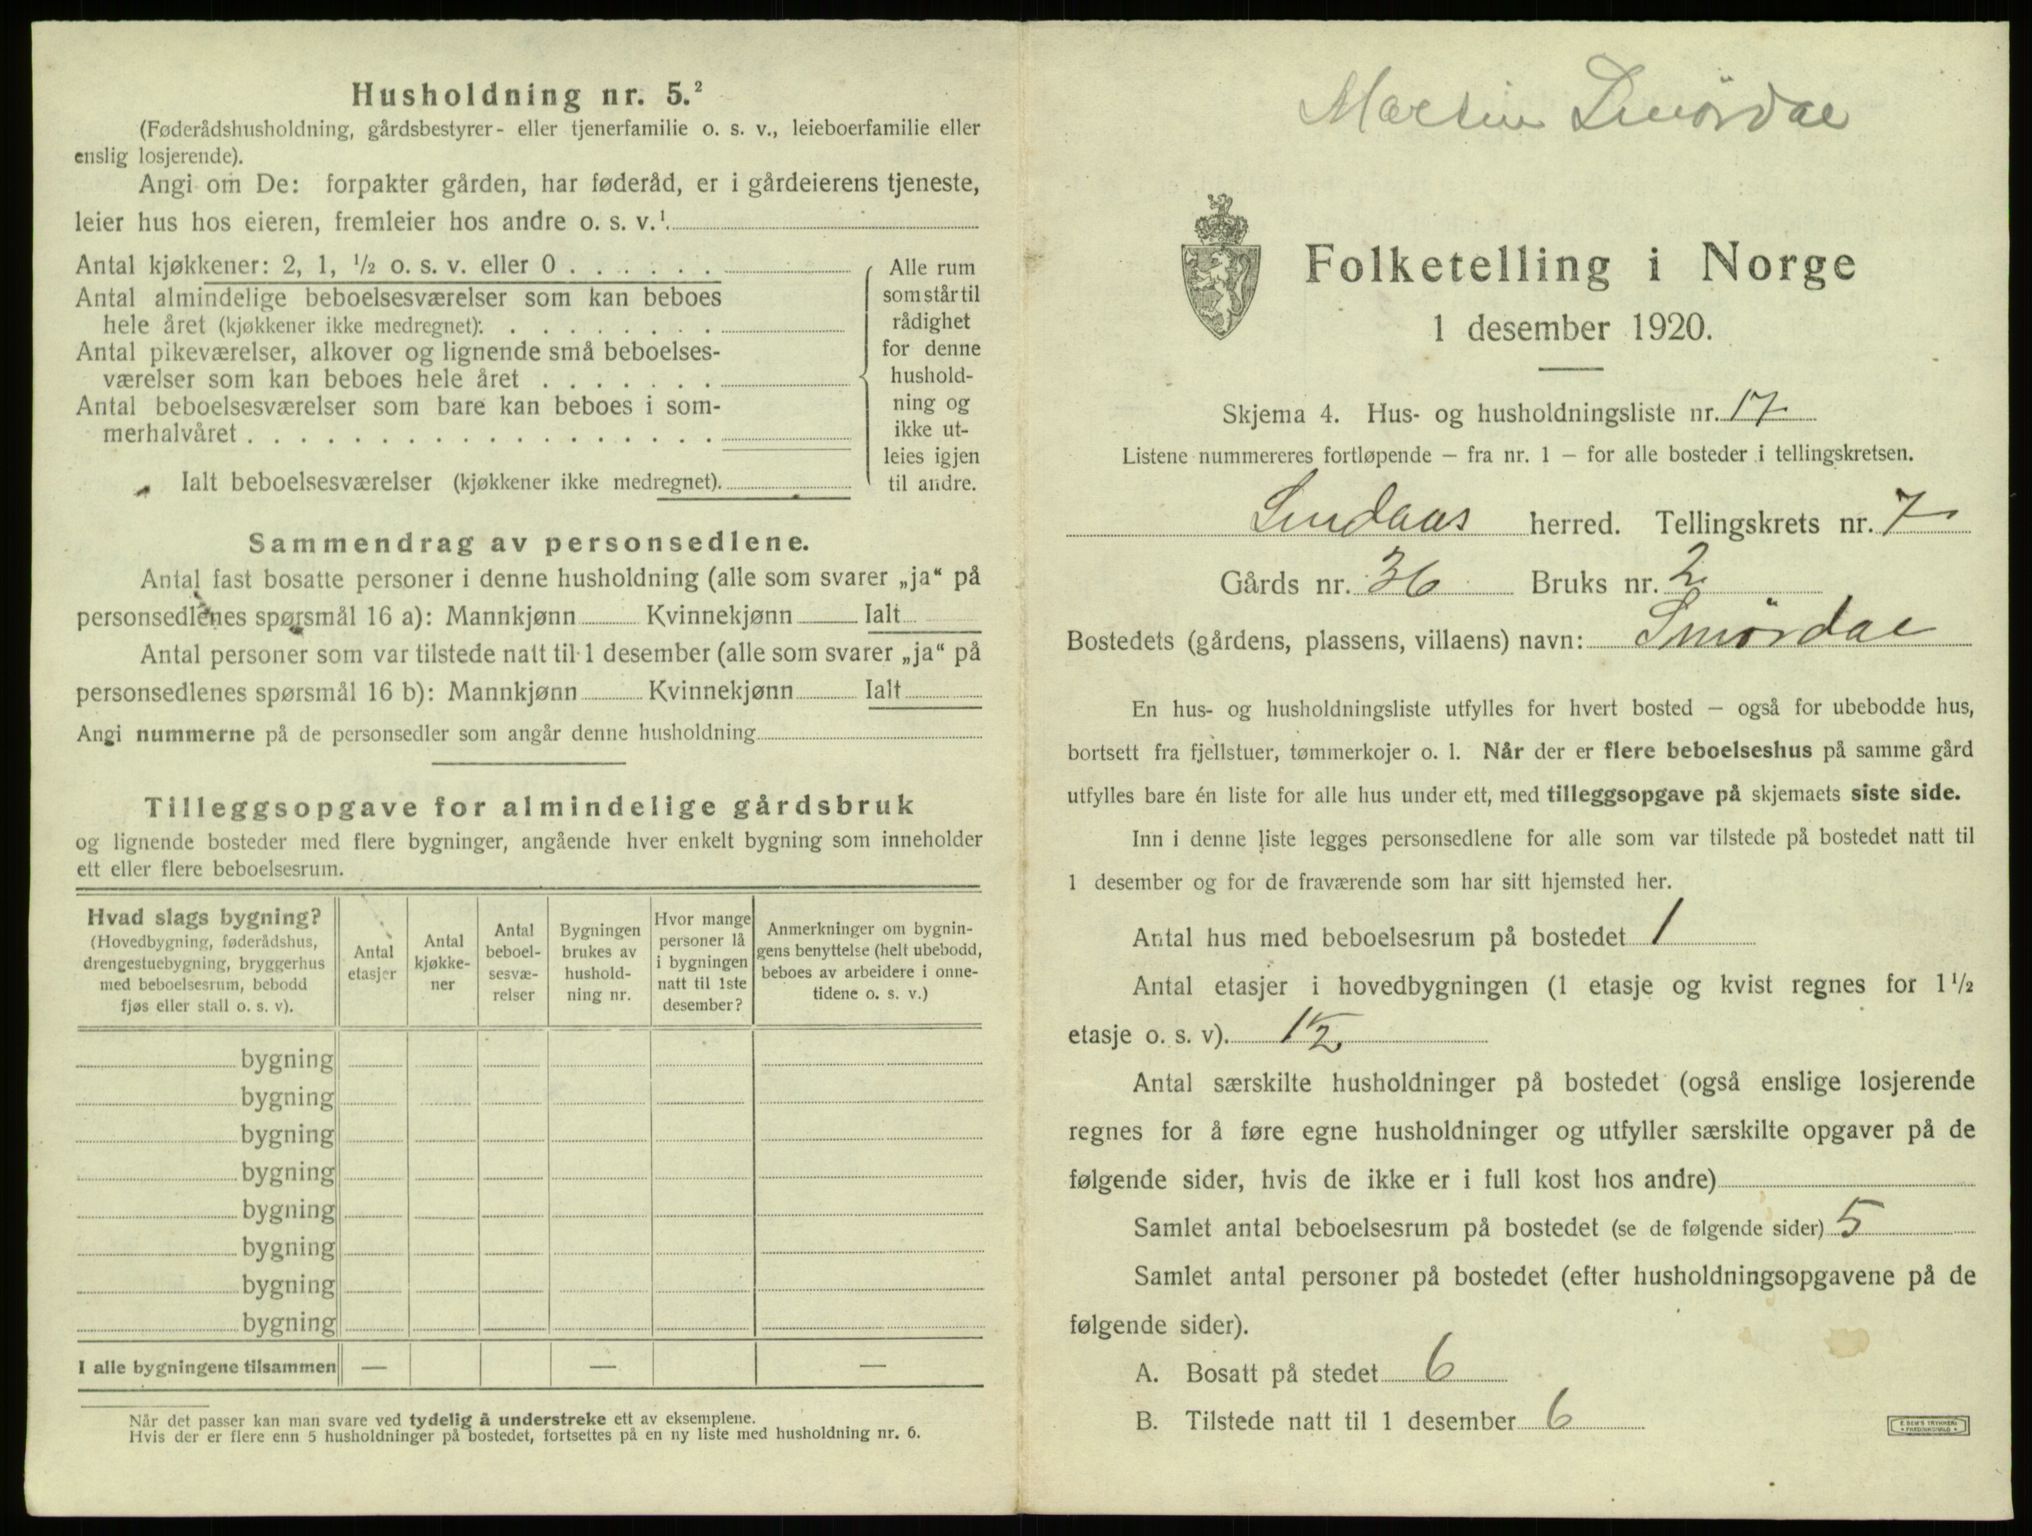 Husholdning nr. 5.²
(Føderådshusholdning, gårdsbestyrer- eller tjenerfamilie o. s. v., leieboerfamilie eller
enslig losjerende).
Angi om De: forpakter gården, har føderåd, er i gårdeierens tjeneste,
leier hus hos eieren, fremleier hos andre o. s. v.¹
Antal kjøkkener: 2, 1, ½ o. s. v. eller 0 . . . . . .
Antal almindelige beboelsesværelser som kan beboes
hele året (kjøkkener ikke medregnet): . . . . . . . .
Antal pikeværelser, alkover og lignende små beboelses-
værelser som kan beboes hele året . . . . . . .
Antal beboelsesværelser som bare kan beboes i som-
merhalvåret . . . . . . . . . . . . . . . . . .
Ialt beboelsesværelser (kjøkkener ikke medregnet).
Alle rum
som står til
rådighet
for denne
hushold-
ning og
ikke ut-
leies igjen
til andre.
Sammendrag av personsedlene.
Antal fast bosatte personer i denne husholdning (alle som svarer „ja“ på
personsedlenes spørsmål 16 a): Mannkjønn Kvinnekjønn Ialt
Antal personer som var tilstede natt til 1 desember (alle som svarer „ja“ på
personsedlenes spørsmål 16 b): Mannkjønn Kvinnekjønn Ialt
Angi nummerne på de personsedler som angår denne husholdning
Tilleggsopgave for almindelige gårdsbruk
og lignende bosteder med flere bygninger, angående hver enkelt bygning som inneholder
ett eller flere beboelsesrum.
Hvad slags bygning?
(Hovedbygning, føderådshus,
drengestuebygning, bryggerhus
med beboelsesrum, bebodd
fjøs eller stall o. s. v).
Antal
etasjer
Antal
kjøkke-
ner
Antal
beboel-
sesvæ-
relser
Bygningen
brukes av
hushold-
ning nr.
Hvor mange
personer lå
i bygningen
natt til 1ste
desember?
Anmerkninger om bygnin-
gens benyttelse (helt ubebodd,
beboes av arbeidere i onne-
tidene o. s. v.)
bygning
bygning
bygning
bygning
bygning
bygning
bygning
bygning
I alle bygningene tilsammen — — —
Når det passer kan man svare ved tydelig å understreke ett av eksemplene.
Hvis der er flere enn 5 husholdninger på bostedet, fortsettes på en ny liste med husholdning nr. 6.
Martin Smørdal
Folketelling i Norge
1 desember 1920.
Skjema 4. Hus- og husholdningsliste nr. 17
Listene nummereres fortløpende – fra nr. 1 – for alle bosteder i tellingskretsen.
Lindaas herred. Tellingskrets nr. 7
Gårds nr. 36 Bruks nr. 2
Bostedets (gårdens, plassens, villaens) navn: Smørdal
En hus- og husholdningsliste utfylles for hvert bosted – også for ubebodde hus,
bortsett fra fjellstuer, tømmerkojer o. l. Når der er flere beboelseshus på samme gård
utfylles bare én liste for alle hus under ett, med tilleggsopgave på skjemaets siste side.
Inn i denne liste legges personsedlene for alle som var tilstede på bostedet natt til
1 desember og for de fraværende som har sitt hjemsted her.
Antal hus med beboelsesrum på bostedet 1
Antal etasjer i hovedbygningen (1 etasje og kvist regnes for 1½
etasje o. s. v). 1½
Antal særskilte husholdninger på bostedet (også enslige losjerende
regnes for å føre egne husholdninger og utfyller særskilte opgaver på de
følgende sider, hvis de ikke er i full kost hos andre)
Samlet antal beboelsesrum på bostedet (se de følgende sider) 5
Samlet antal personer på bostedet (efter husholdningsopgavene på de
følgende sider).
A. Bosatt på stedet 6
B. Tilstede natt til 1 desember 6